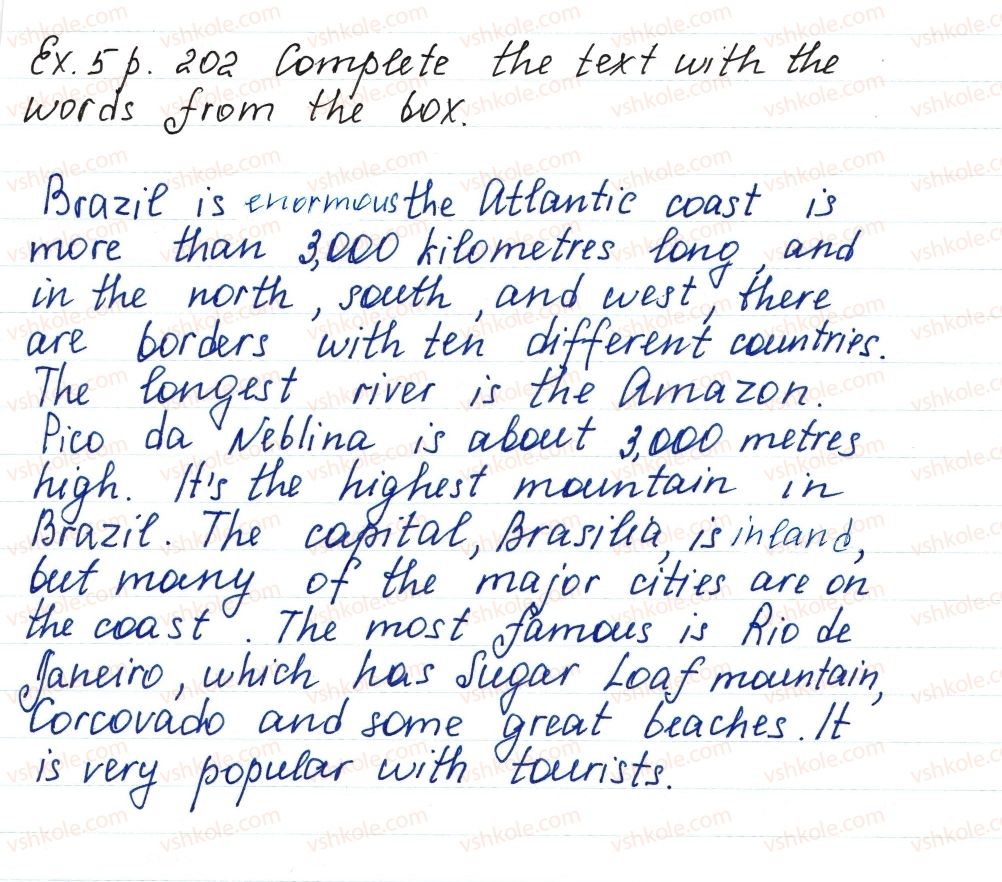 Ex. 5 p. 202 Complete the text with the
words from the box.
Brazil is enormous the Atlantic coast is
more than 3,000 kilometres long, and
in the north, south, and west, there
are borders with ten different countries.
The longest river is the Amazon.
Pico da Neblina is about 3,000 metres
high. It's the highest mountain in
Brazil. The capital, Brasilia, is inland,
but many of the major cities are on
the coast. The most famous is Rio de
Janeiro, which has Sugar Loaf mountain,
Corcovado and some great beaches. It
is very popular with tourists.
vshkole.com